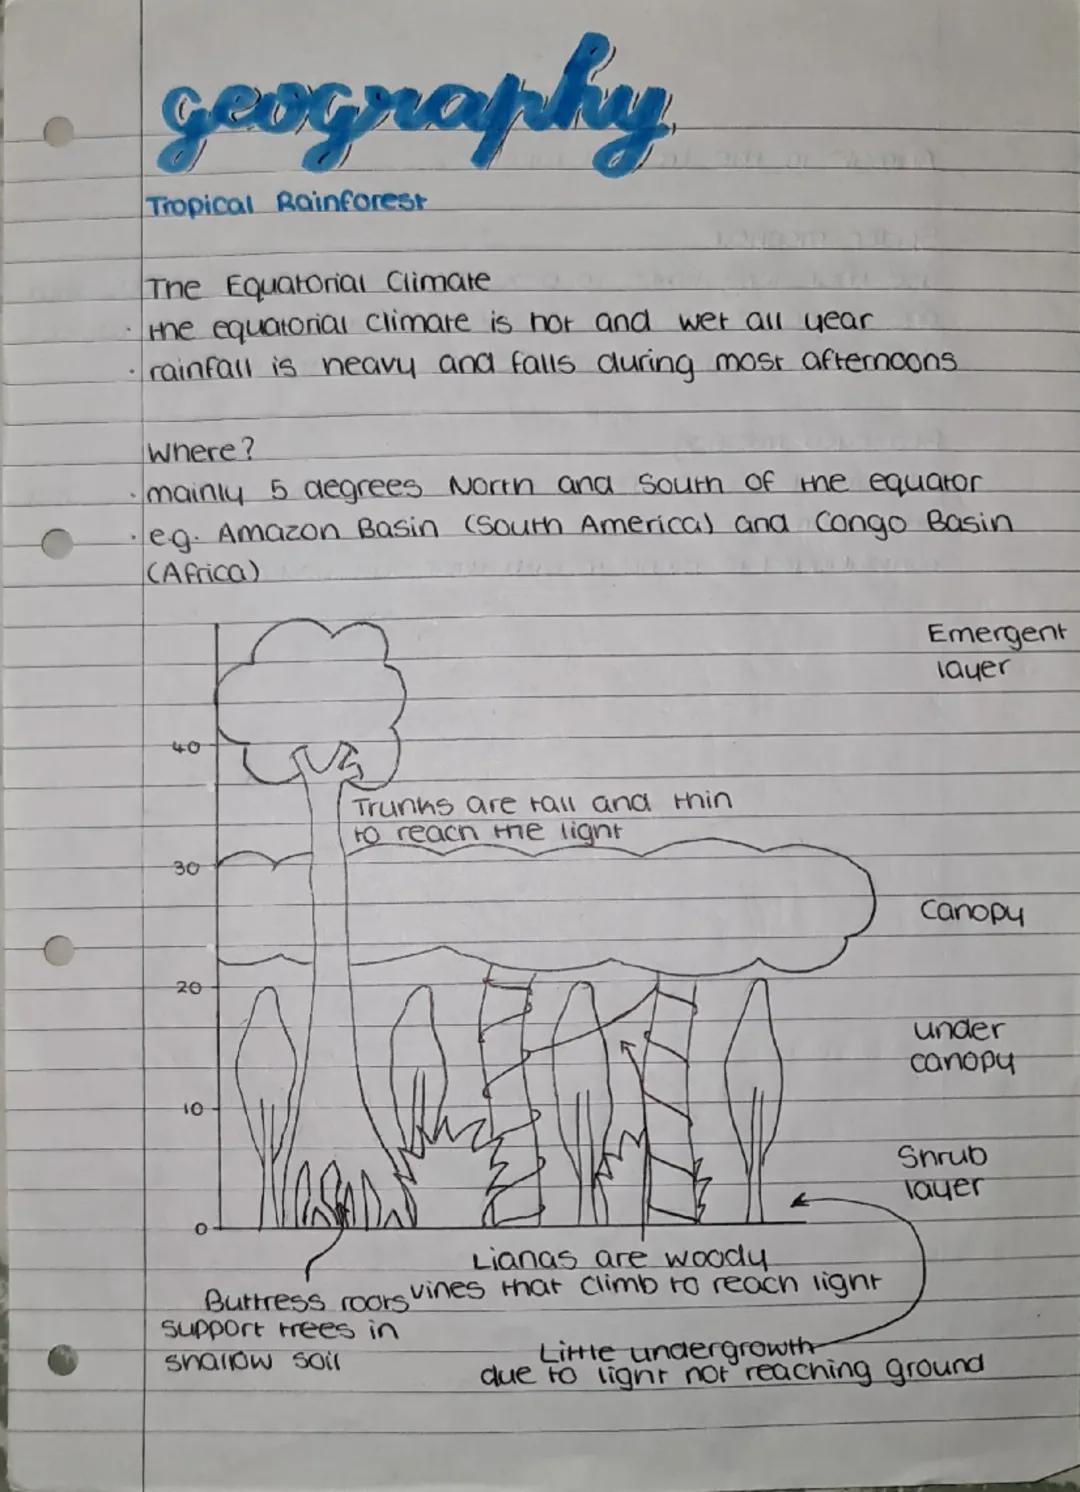 geography
Tropical Rainforest
The Equatorial Climate
· the equatorial climate is hot and wet all year
· rainfall is heavy and falls during most afternoons
Where?
· mainly 5 degrees North and South of the equator
· e.g. Amazon Basin (South America) and Congo Basin
(Africa)
Emergent
layer
40
Trunks are tall and thin
to reach the light
30
Canopy
20
under
canopy
10
Shrub
layer
0
Lianas are woody
vines that climb to reach light
Buttress roots
support trees in
shallow soil
Little undergrowth
due to light not reaching ground